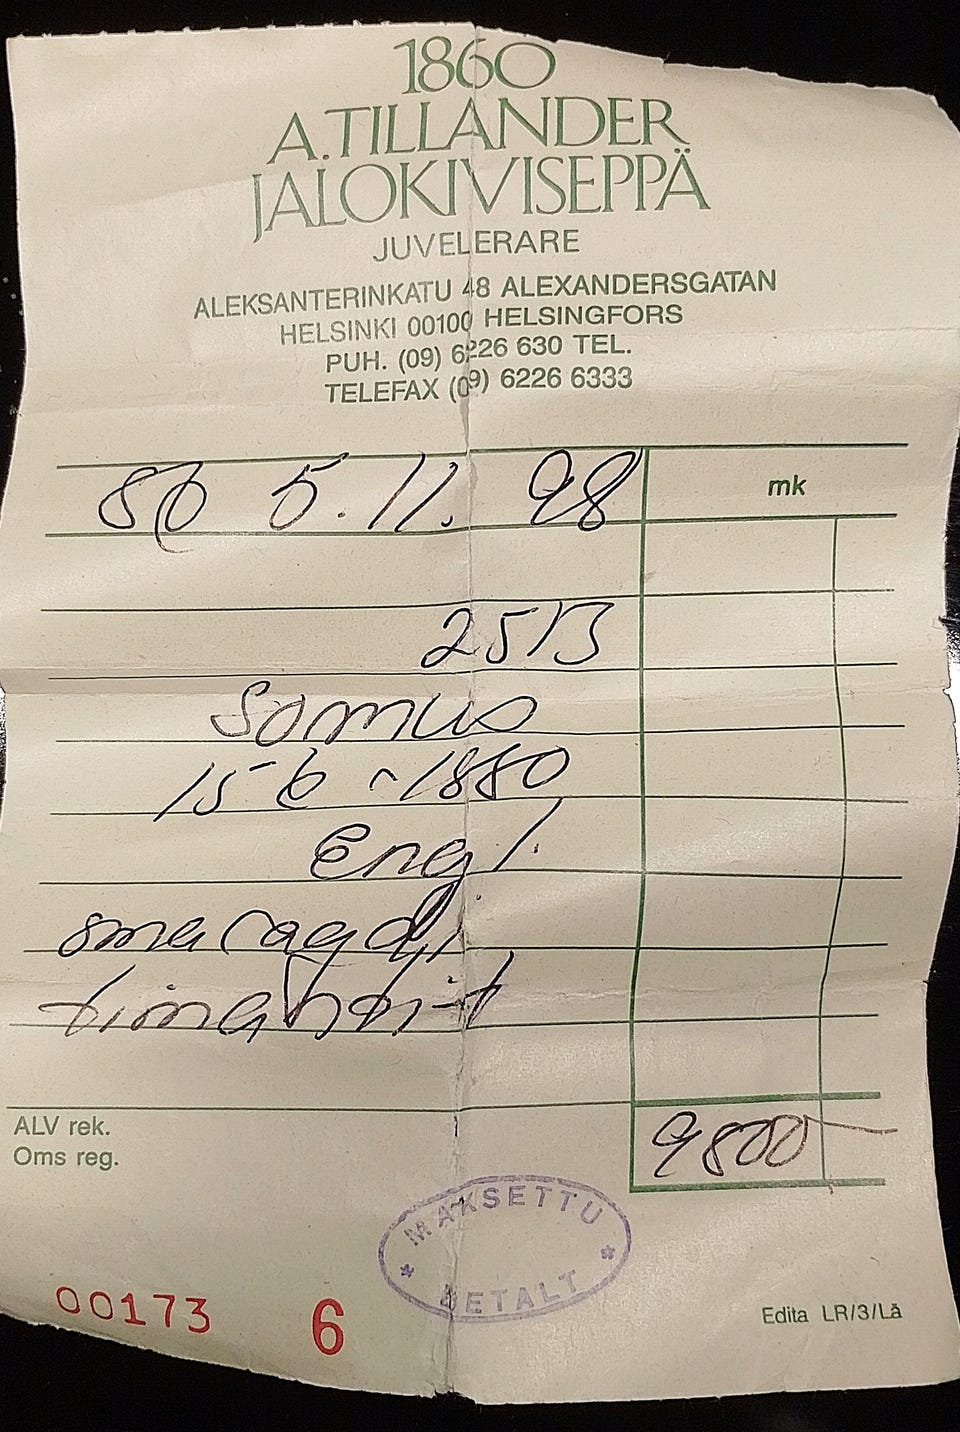 1860
A.TILLANDER
JALOKIVISEPPÄ
JUVELERARE
ALEKSANTERINKATU 48 ALEXANDERSGATAN
HELSINKI 00100 HELSINGFORS
PUH. (09) 6226 630 TEL.
TELEFAX (09) 6226 6333
5.11.98
mk
2513
Sormus
1880
Engl.
smaragdi
timantit
ALV rek.
Oms reg.
9800
MAKSETTU
BETALT
00173 6
Edita LR/3/Lä